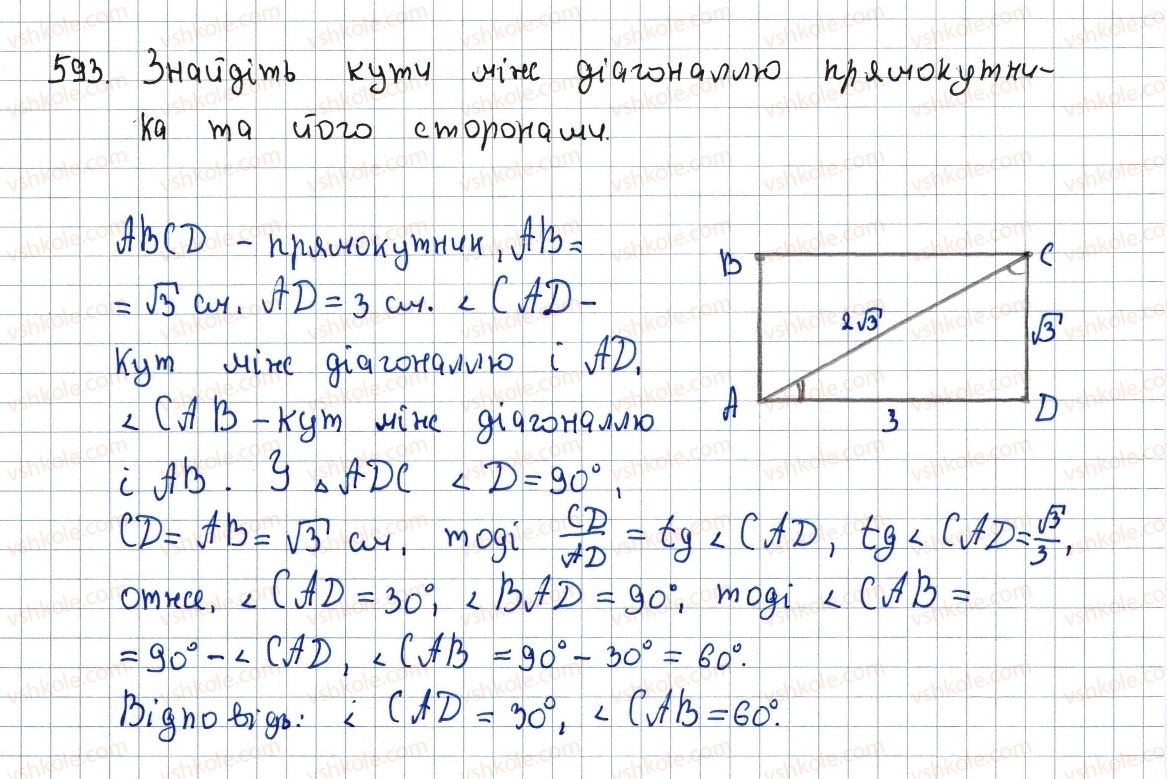 593. Знайдіть кути між діагоналлю прямокутни-
ка та його сторонами.
ABCD - прямокутник, AB =
= √3 см. AD = 3 см. < CAD -
кут між діагоналлю і AD.
< CAB - кут між діагоналлю
і AB. У △ ADC < D = 90°,
CD = AB = √3 см, тоді CD/AD = tg < CAD, tg < CAD = √3/3,
отже, < CAD = 30°, < BAD = 90°, тоді < CAB =
= 90° - < CAD, < CAB = 90° - 30° = 60°.
Відповідь: < CAD = 30°, < CAB = 60°.
B
C
2√3
√3
A
3
D
vshkole.com